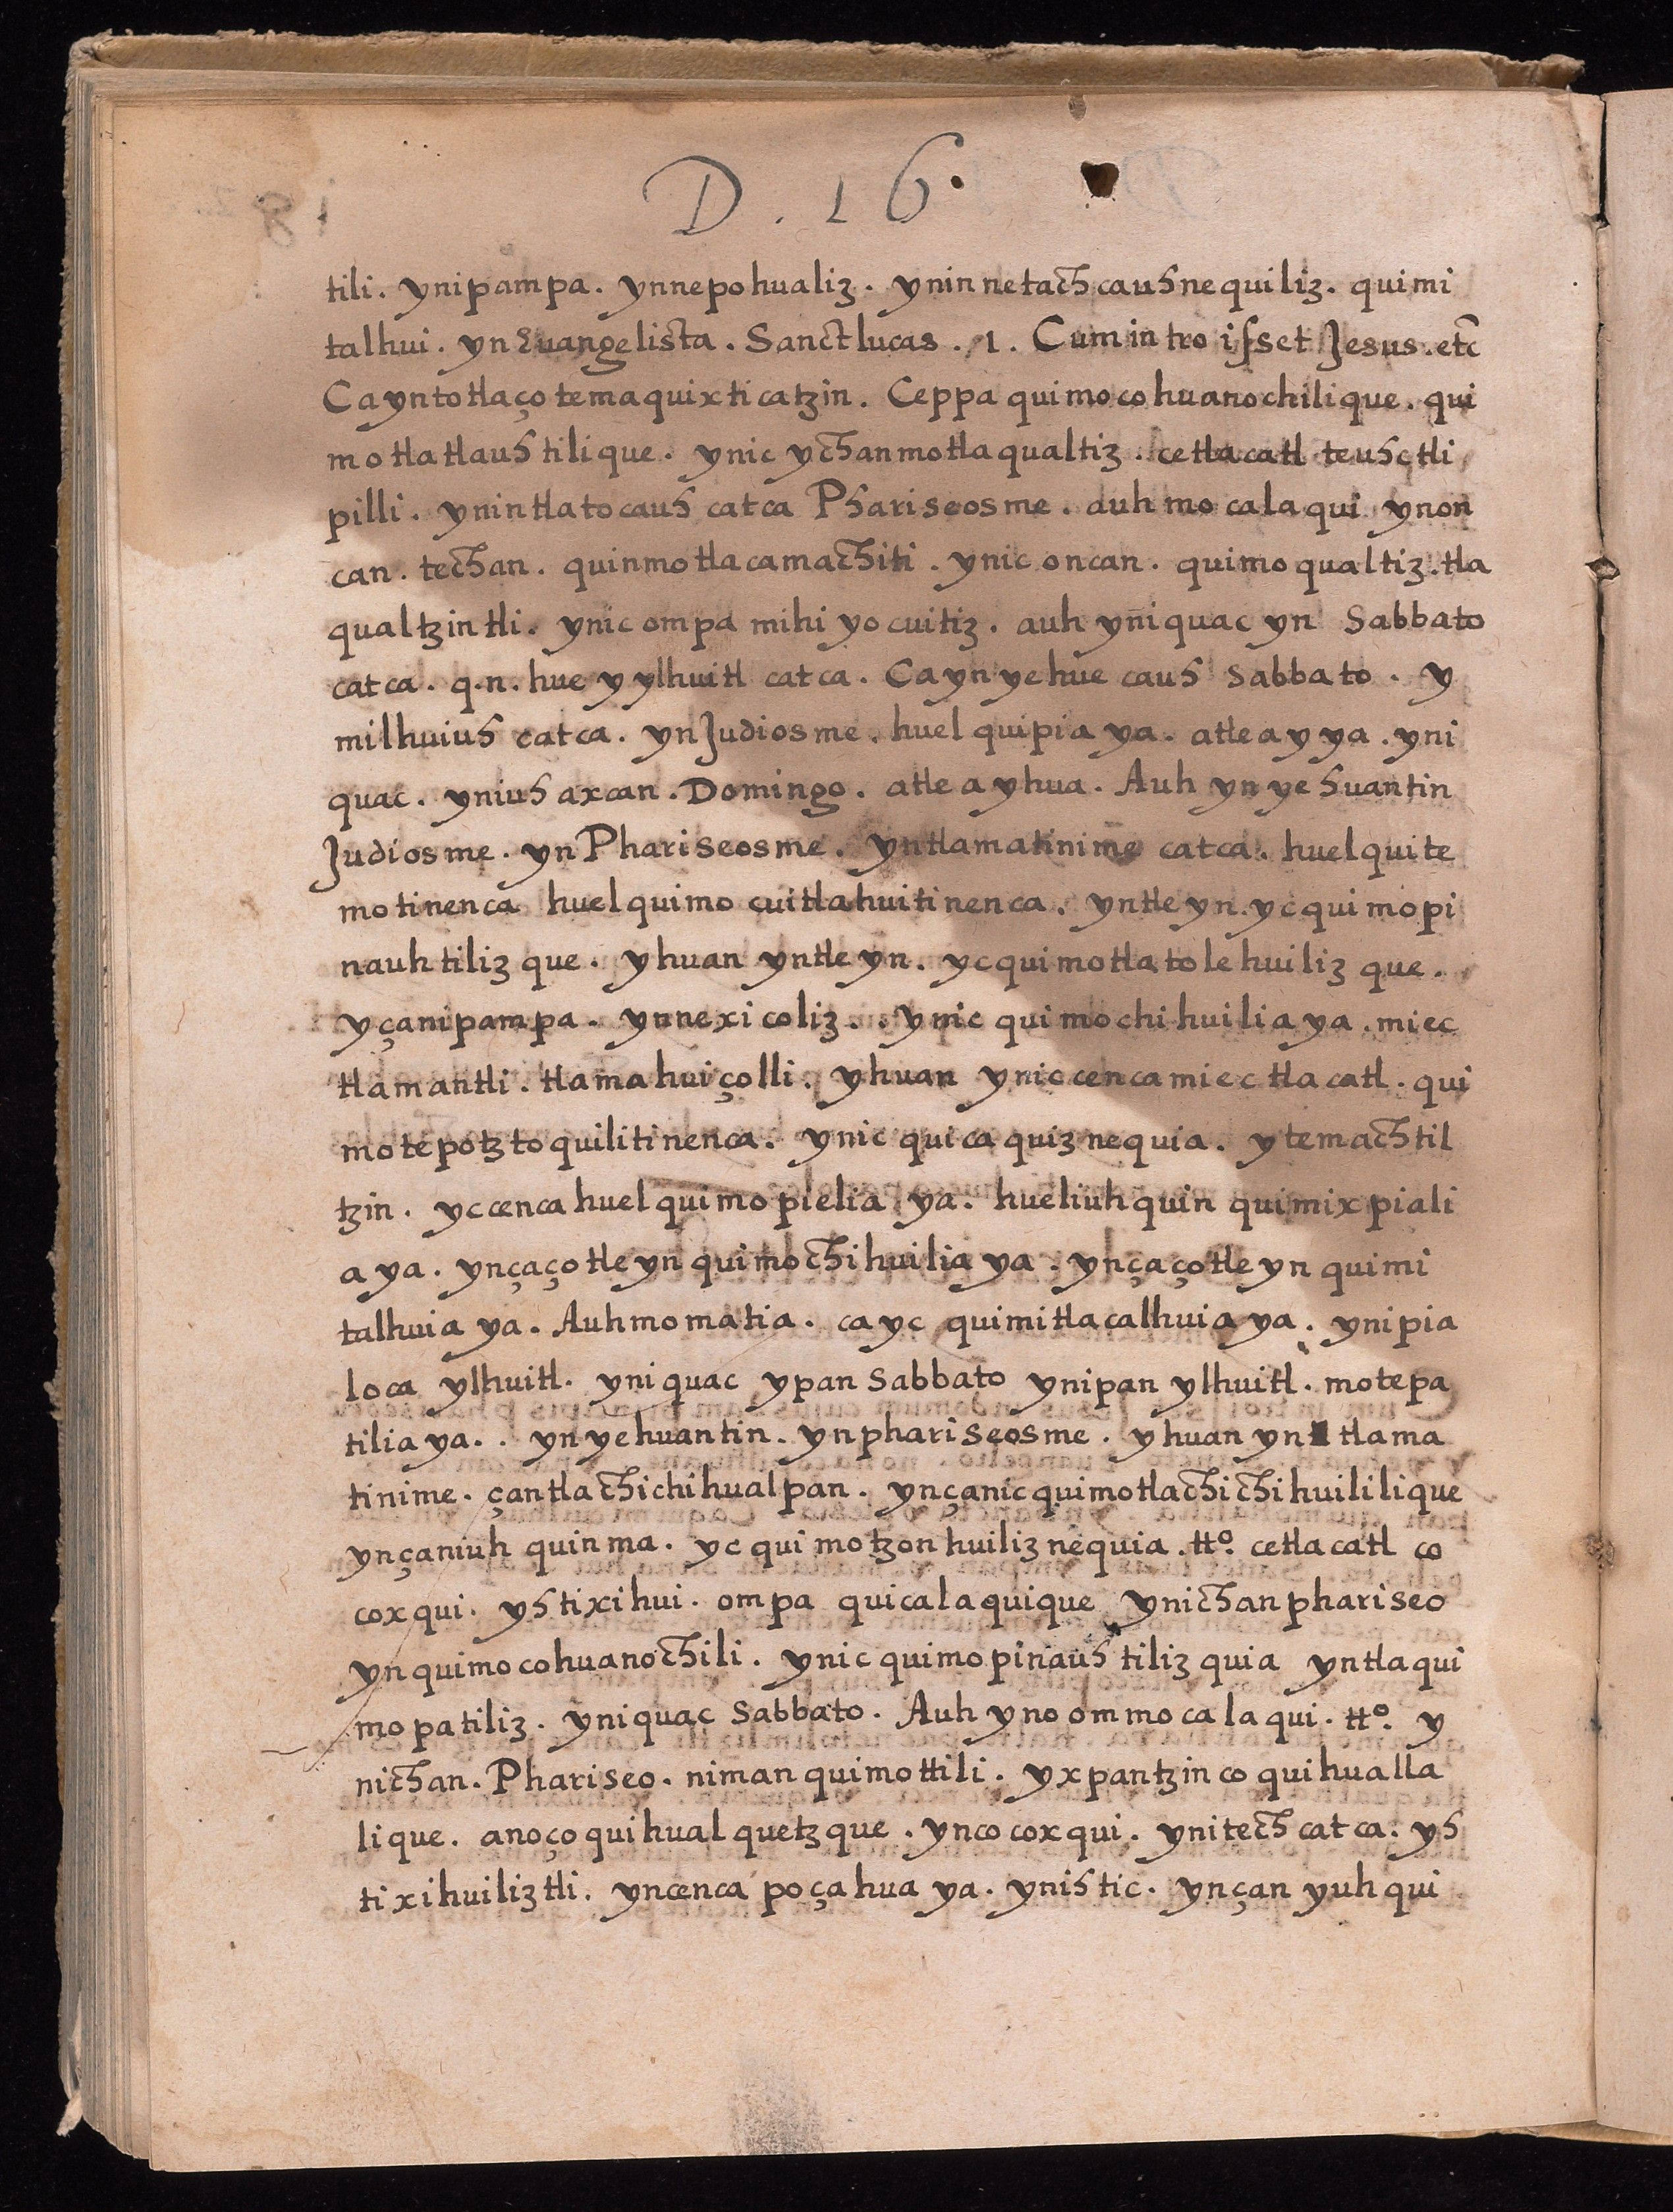 D. 16.
tili. ynipampa. ynnepohualiz. ynin netachcauhnequiliz. quimi
talhui. yn Euangelista. Sanct lucas. 1. Cum introisset Jesus. etc
Ca yntotlaçotemaquixticatzin. Ceppa quimocohuanochilique. qui
motlatlauhtilique. ynic ychan motlaqualtiz. ce tlacatl teuhctli
pilli. ynintlatocauh catca Phariseosme. auh mocalaqui ynon
can. techan. quinmotlacamachiti. ynic oncan. quimoqualtiz. tla
qualtzintli. ynic ompa mihiyocuitiz. auh yniquac yn Sabbato
catca. q.n. huey ylhuitl catca. Ca yn yehuecauh Sabbato. y
milhuiuh catca. yn Judiosme. huel quipiaya. atle ayya. yni
quac. yniuh axcan. Domingo. atle ayhua. Auh yn yehuantin
Judiosme. yn Phariseosme. yntlamatinime catca. huel quite
motinenca huel quimocuitlahuitinenca. yntleyn. yc quimopi
nauhtilizque. yhuan yntleyn. yc quimotlatolehuilizque.
yçanipampa. ynnexicoliz. . ynic quimochihuiliaya. miec
tlamantli. tlamahuiçolli. yhuan ynic cenca miec tlacatl. qui
motepotztoquilitinenca. ynic quicaquiznequia. ytemachtil
tzin. yc cenca huel quimopieliaya. hueliuhquin quimixpiali
aya. ynçaçotleyn quimochihuiliaya. ynçaçotleyn quimi
talhuiaya. Auh momatia. ca yc quimitlacalhuiaya. ynipia
loca ylhuitl. yniquac ypan Sabbato ynipan ylhuitl. motepa
tiliaya. . yn yehuantin. yn phariseosme. yhuan yn tlama
tinime. çan tlachichihualpan. ynçanic quimotlachichihuililique
ynçaniuhquinma. yc quimotzonhuiliznequia. tto. ce tlacatl co
coxqui. yhtixihui. ompa quicalaquique ynichan phariseo
yn quimocohuanochili. ynic quimopinauhtilizquia yntla qui
mopatiliz. yniquac Sabbato. Auh yno ommocalaqui. tto. y
nichan. Phariseo. niman quimottili. yxpantzinco quihualla
lique. anoço quihualquetzque. yncocoxqui. ynitech catca. yh
tixihuiliztli. yncenca poçahuaya. ynihtic. ynçan yuhqui